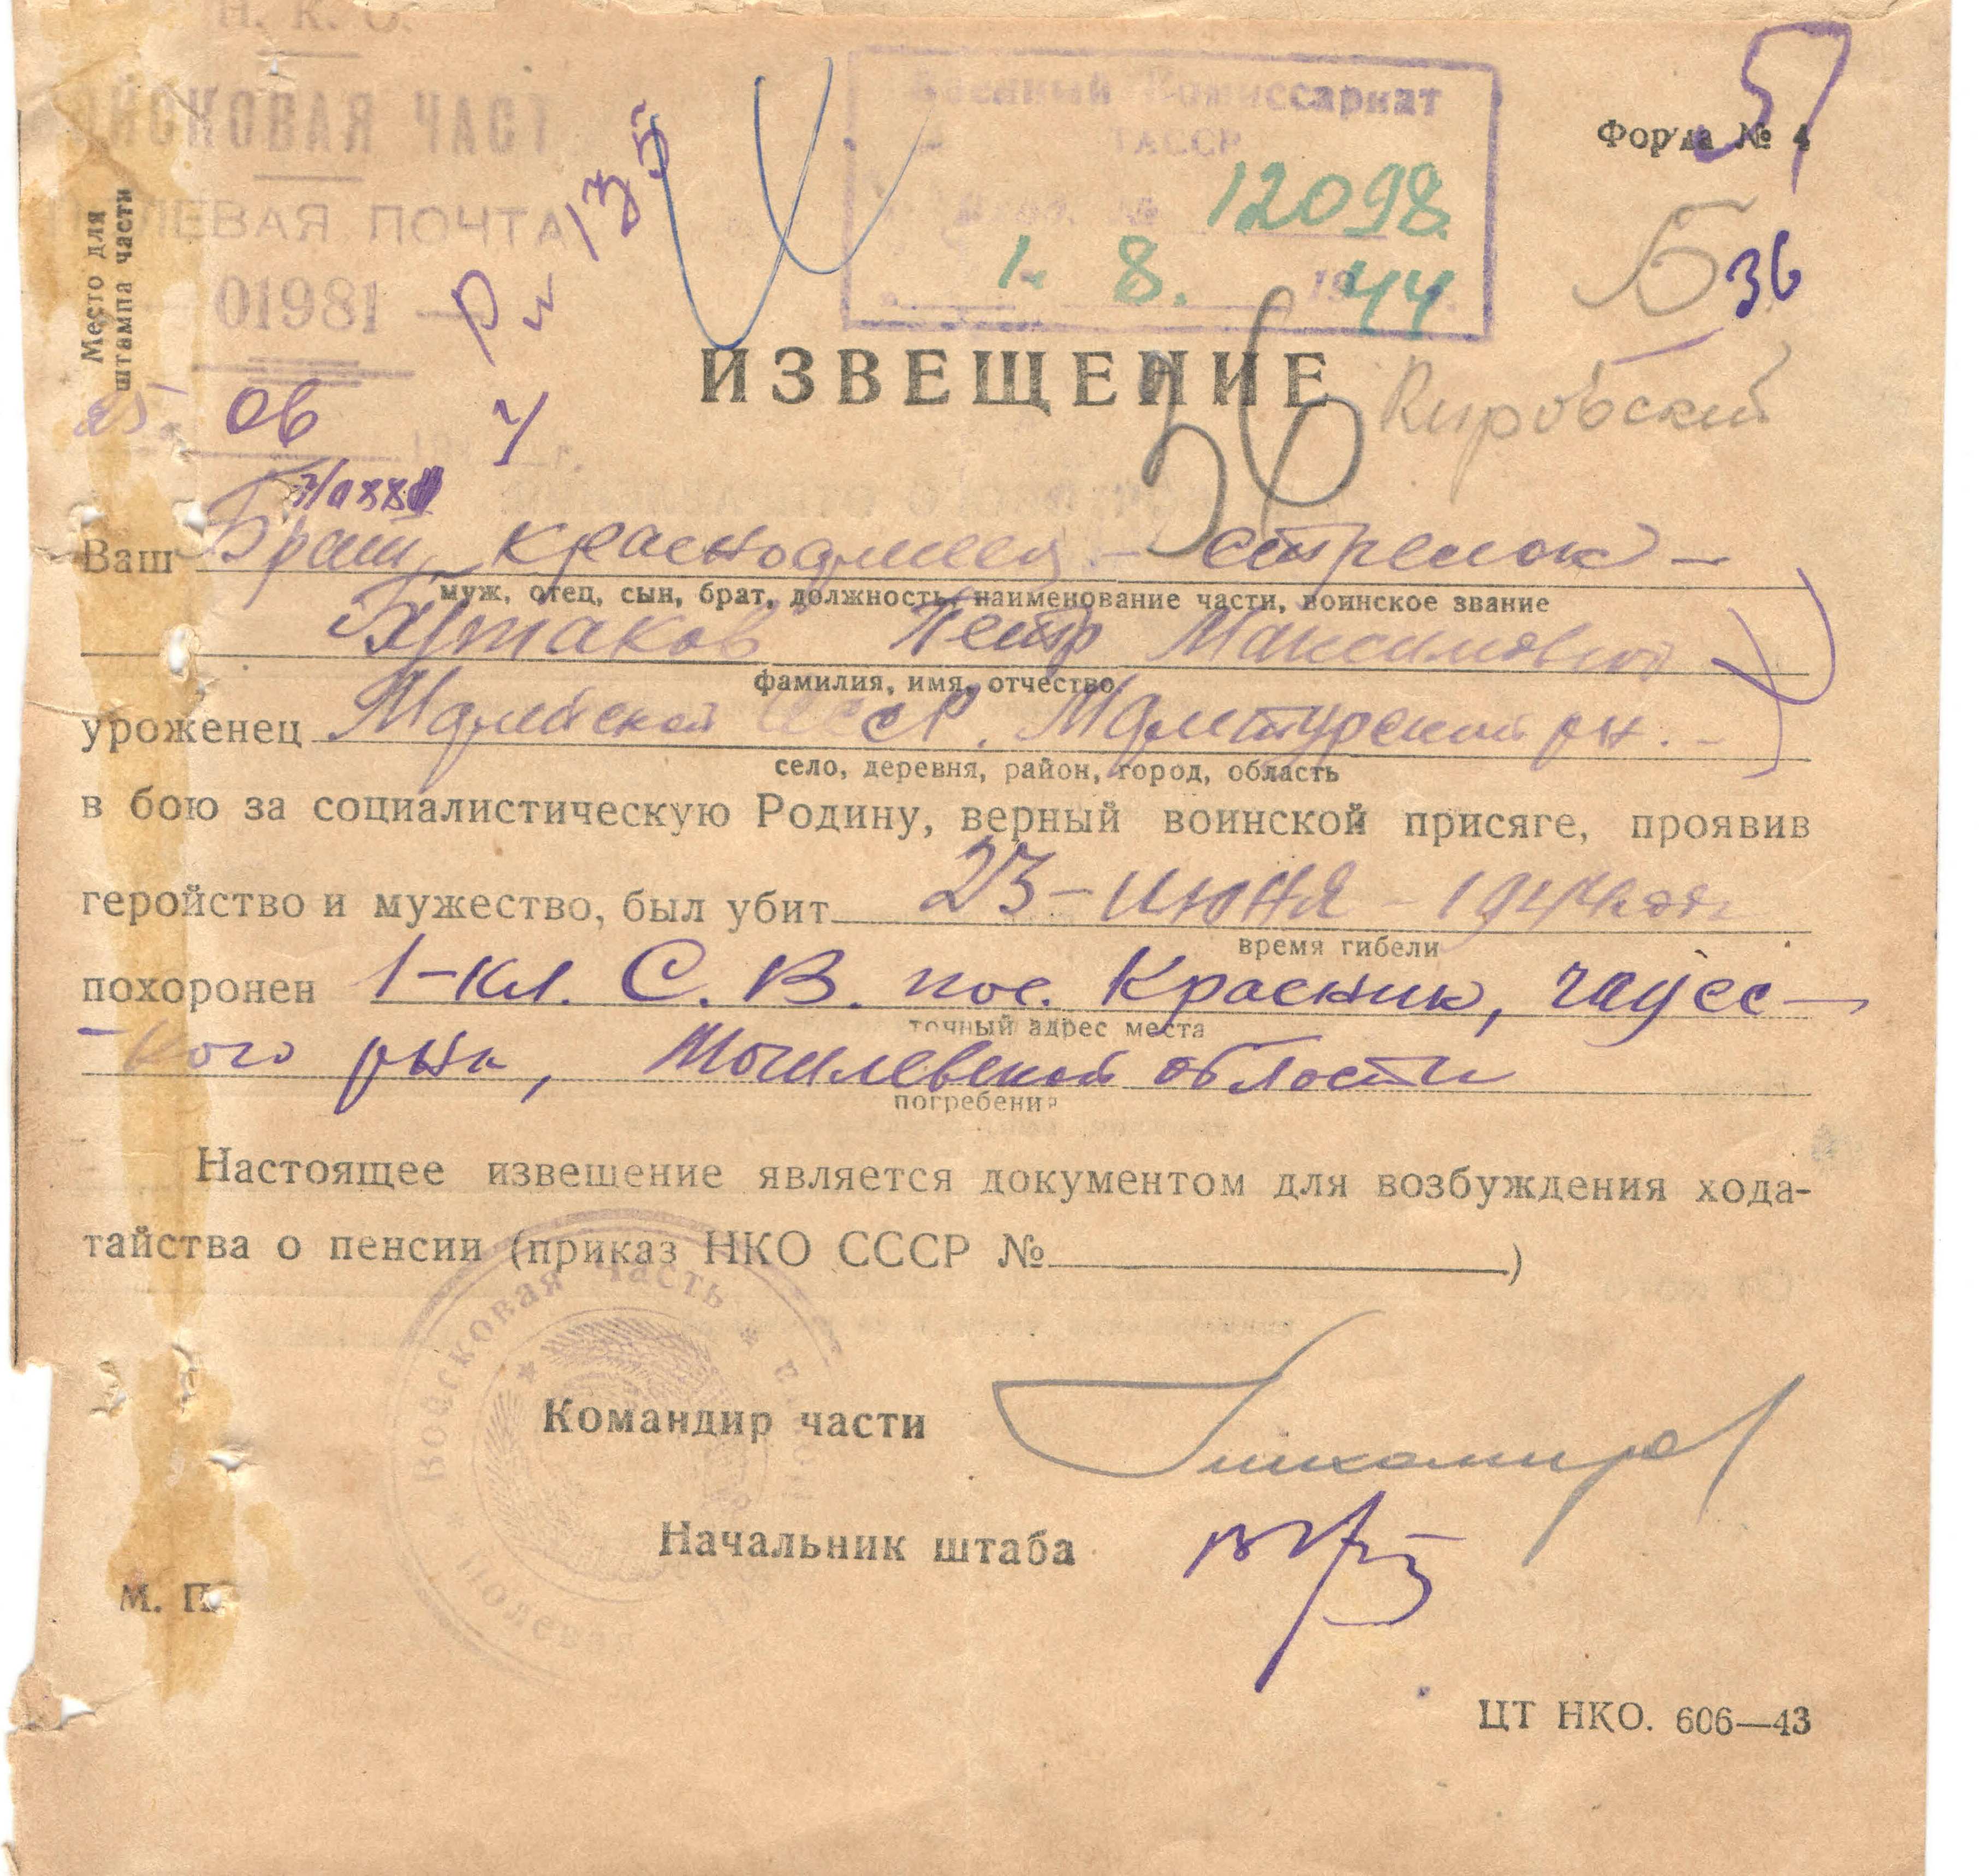 Н. К. О.
ВОЙСКОВАЯ ЧАСТ
ПОЛЕВАЯ ПОЧТА
01981
Место для
штампа части
25. 06
Военный Комиссариат
ТАССР
12098
1. 8. 1944
Форма № 4
51
Б 36
135
ИЗВЕЩЕНИЕ
36
Кировский
Ваш Брат, красноармеец - стрелок -
муж, отец, сын, брат, должность, наименование части, воинское звание
Бутаков Петр Максимович
фамилия, имя, отчество
уроженец Марийской ССР. Мари-Турский р-н. -
село, деревня, район, город, область
в бою за социалистическую Родину, верный воинской присяге, проявив
геройство и мужество, был убит 23 - июня - 1944 года
время гибели
похоронен 1-кл. С. В. пос. Красник, чаусс-
точный адрес места
-кого р-на, Могилевской области
погребения
Настоящее извещение является документом для возбуждения хода-
тайства о пенсии (приказ НКО СССР № )
Войсковая часть * Полевая
Командир части Тихомиров
Начальник штаба
М. П.
ЦТ НКО. 606—43